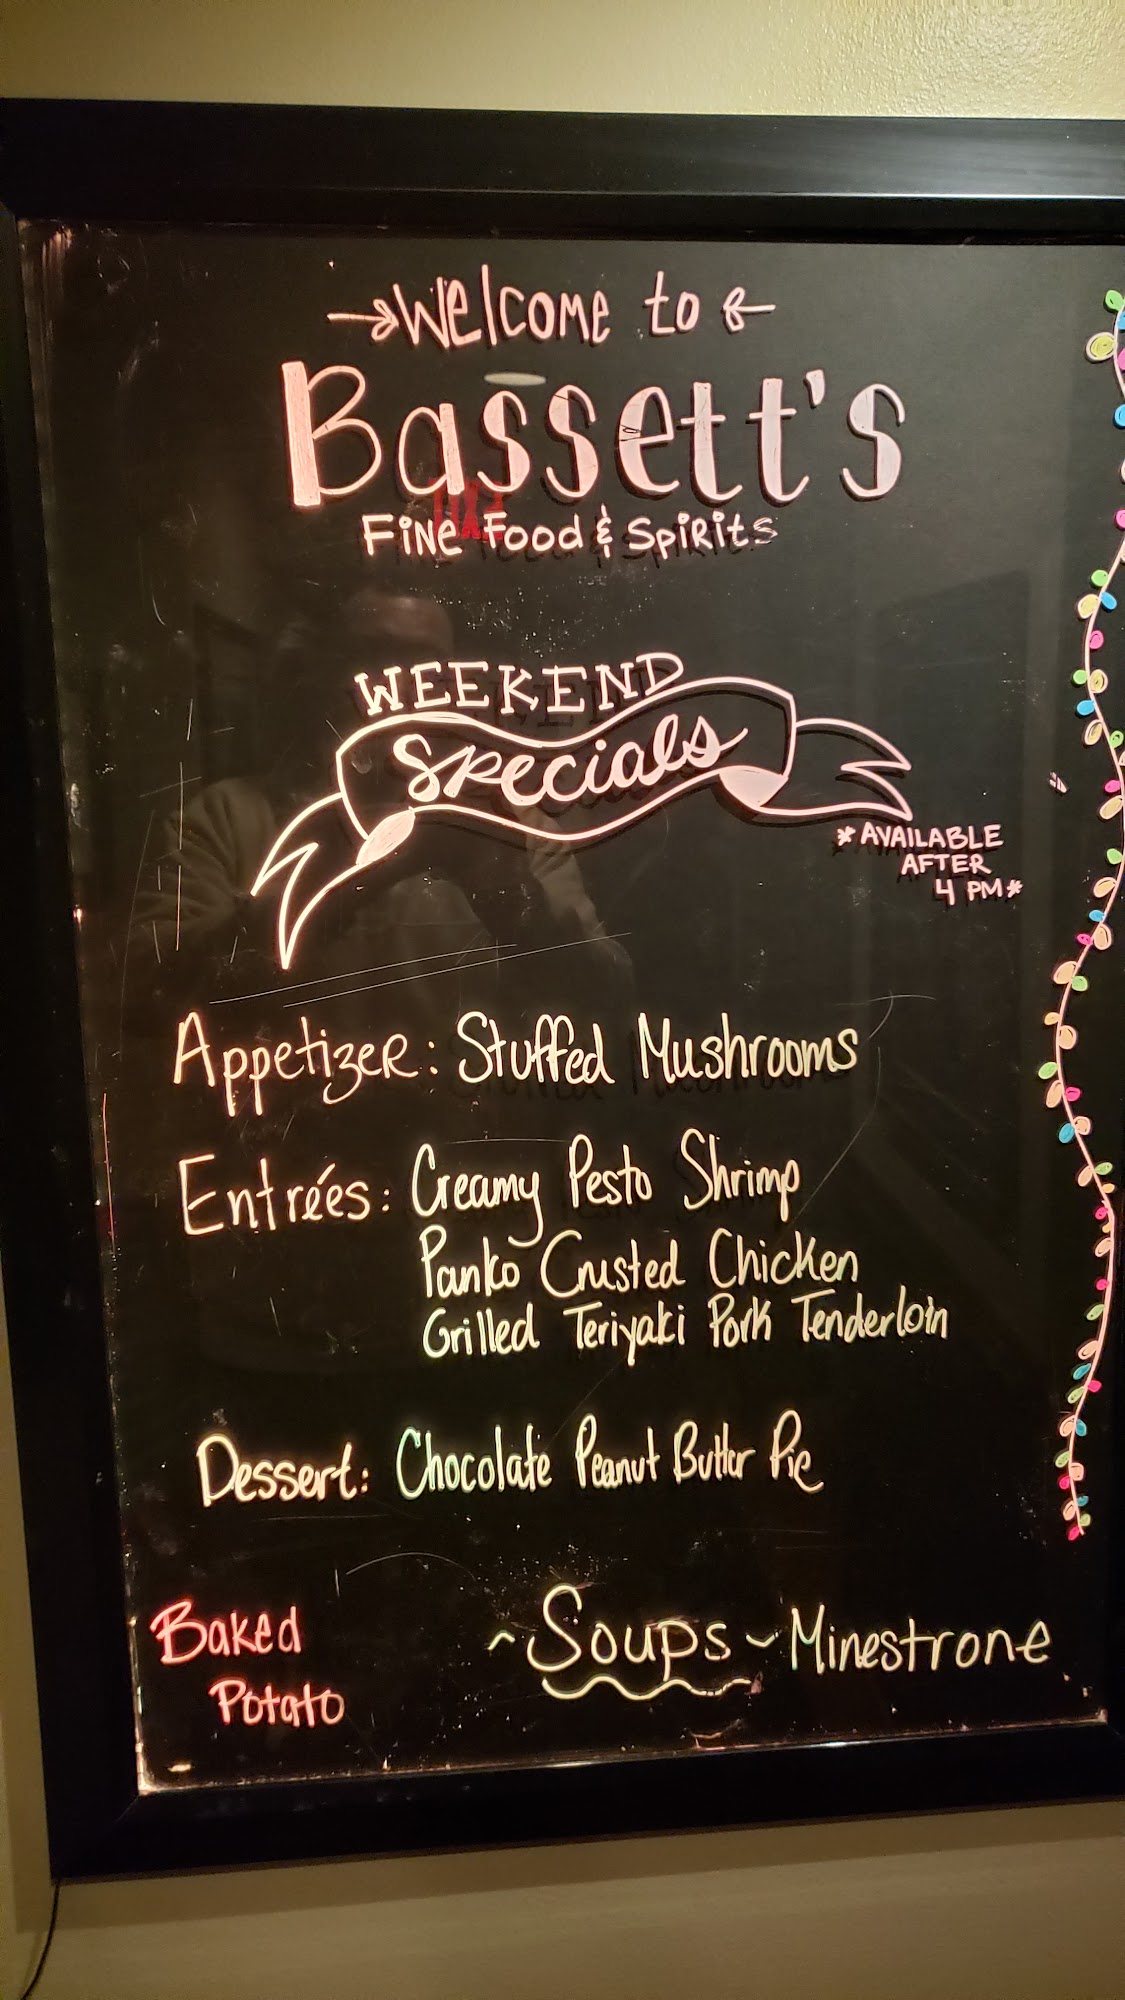 Welcome to
Bassett's
Fine Food & Spirits
WEEKEND
Specials
*AVAILABLE
AFTER
4 PM*
Appetizer: Stuffed Mushrooms
Entrées: Creamy Pesto Shrimp
Panko Crusted Chicken
Grilled Teriyaki Pork Tenderloin
Dessert: Chocolate Peanut Butter Pie
Baked
Potato
~Soups~ Minestrone